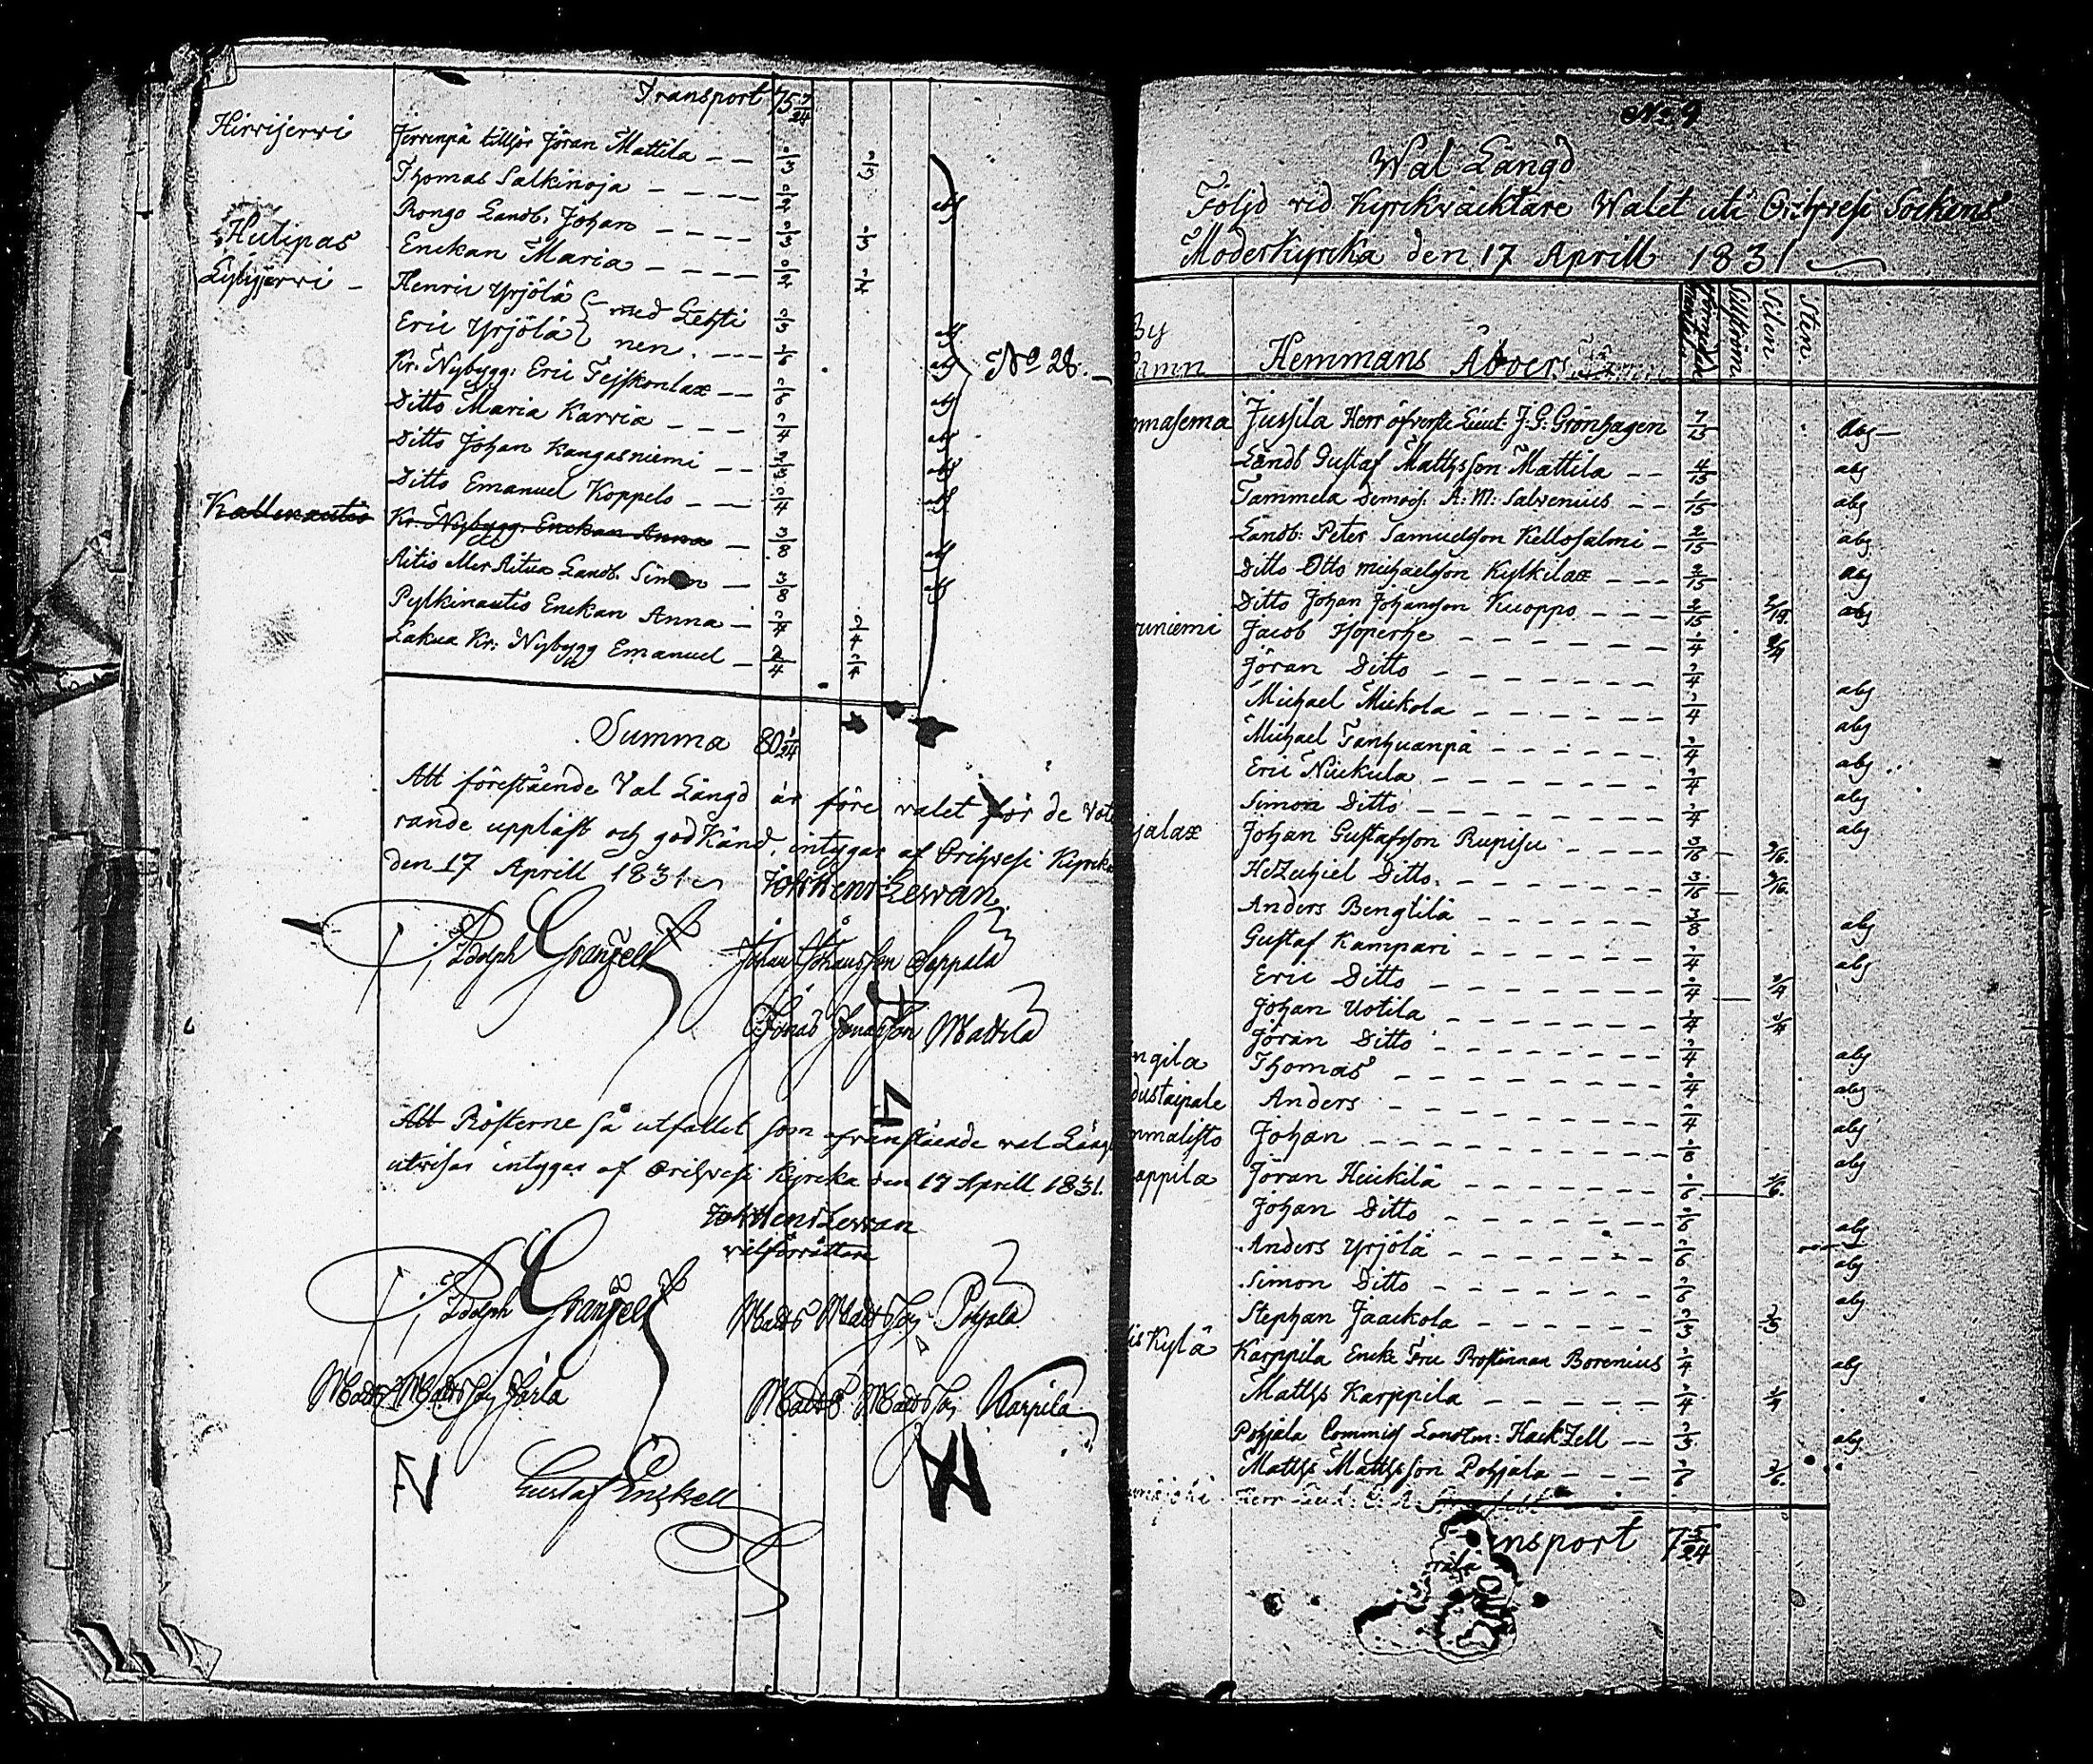 Transport 75 7/24
Hirvijerwi Jerrenpä tillhör Jöran Mattila
Thomas Salkinoja
Rongo Landb. Johan
Hutipas Enckan Maria
Lyhyjerwi Henric Yrjölä med Lehti
Eric Yrjölä nen.
Kr. Nybygg: Eric
Ditto Maria Karvia
Ditto Johan Kangasniemi
Ditto Emanuel Koppelo
Kallenautio Kr. Nybygg. Enckan Anna 3/8
Aitio eller Landb. Simon 3/8
Pylkinautio Enckan Anna
Lakua Kr: Nybygg Emanuel
No 28.
Summa 80 1/24
Att förestående Val Längd är före valet för de vote
rande uppläst och godkänd intygas af Orihvesi Kyrka
den 17 Aprill 1831
Joh Henr Lewan
Adolph Granfelt Johan Johansson Seppälä
Jonas Jonasson Mattila
Att Rösterne så utfallet som frånstående val Läng
utvisar intygas af Orihvesi Kyrcka den 17 Aprill 1831.
Joh Henr Lewan
valförrättare
Adolph Granfelt Matts Mattsson Pohjala
Matts Mattsson Matts Mattsson Karpila
Gustaf Enckell
No 9
Wal Längd
Följd vid Kyrkväcktare Walet uti Orihvesi Sockens
Moderkyrka den 17 Aprill 1831
By
Namn Hemmans Åboer Silfström Selen. Sten
Jussila Herr öfverste Lieut: J: G: Grönhagen 7/15 abs
Landb Gustaf Mattsson Mattila 4/15 abs
Tammela Demois: A: M: Salvenius 1/15 abs
Landb: Peter Samuelsson Kellosalmi 2/15 abs
Ditto Otto Michaelsson Kylkilax 2/15 abs
Ditto Johan Johansson Kuoppo 2/15 2/15 abs
uniemi Jacob Hoperhe 1/4 1/4
Jöran Ditto 1/4 abs
Michael Mickola 1/4 abs
Michael Tanhuanpä 1/4 abs
Eric Nickula 1/4 abs
Simon Ditto 1/4 abs
jalax Johan Gustafsson Rupisu 3/16 3/16
Hezechiel Ditto 3/16 3/16
Anders Bengtilä 3/8 abs
Gustaf Kampari 1/4 abs
Eric Ditto 1/4 1/4
Johan Uotila 1/4 1/4
Jöran Ditto 1/4 abs
ngila Thomas 1/4 abs
dustaipale Anders 1/4 abs
mmalisto Johan abs
appila Jöran Heickilä 1/6 1/6
Johan Ditto 1/6 abs
Anders Yrjölä 1/6 abs
Simon Ditto 1/6 abs
Stephan Jaackola 1/3 1/3
is Kylä Karppila Encke Fru Prostinnan Borenius 1/4 abs
Matts Karppila 1/4 1/4
Pohjala Commiss Lansm: Hackzell 1/3 abs
Matts Mattsson Pohjala 1/6 1/6
nsport 7 5/24